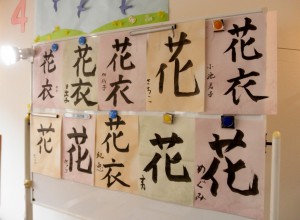 4
花衣
花衣
花衣
花
花衣
花
花
花衣
花
花
めぐみ